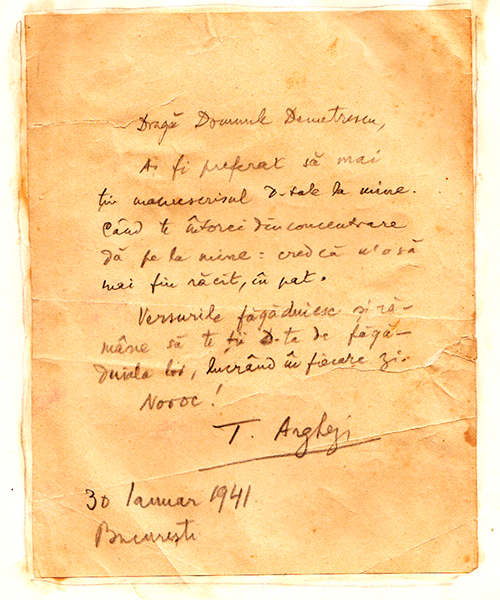 Dragă Domnule Demetrescu,
Aș fi preferat să mai
țiu manuscrisul D-tale la mine.
Când te întorci din concentrare
dă pe la mine: cred că n'o să
mai fiu răcit, în pat.
Versurile făgăduiesc și ră-
mâne să te ții D-ta de făgă-
duiala lor, lucrând în fiecare zi.
Noroc!
T. Arghezi
30 Ianuar 1941
București